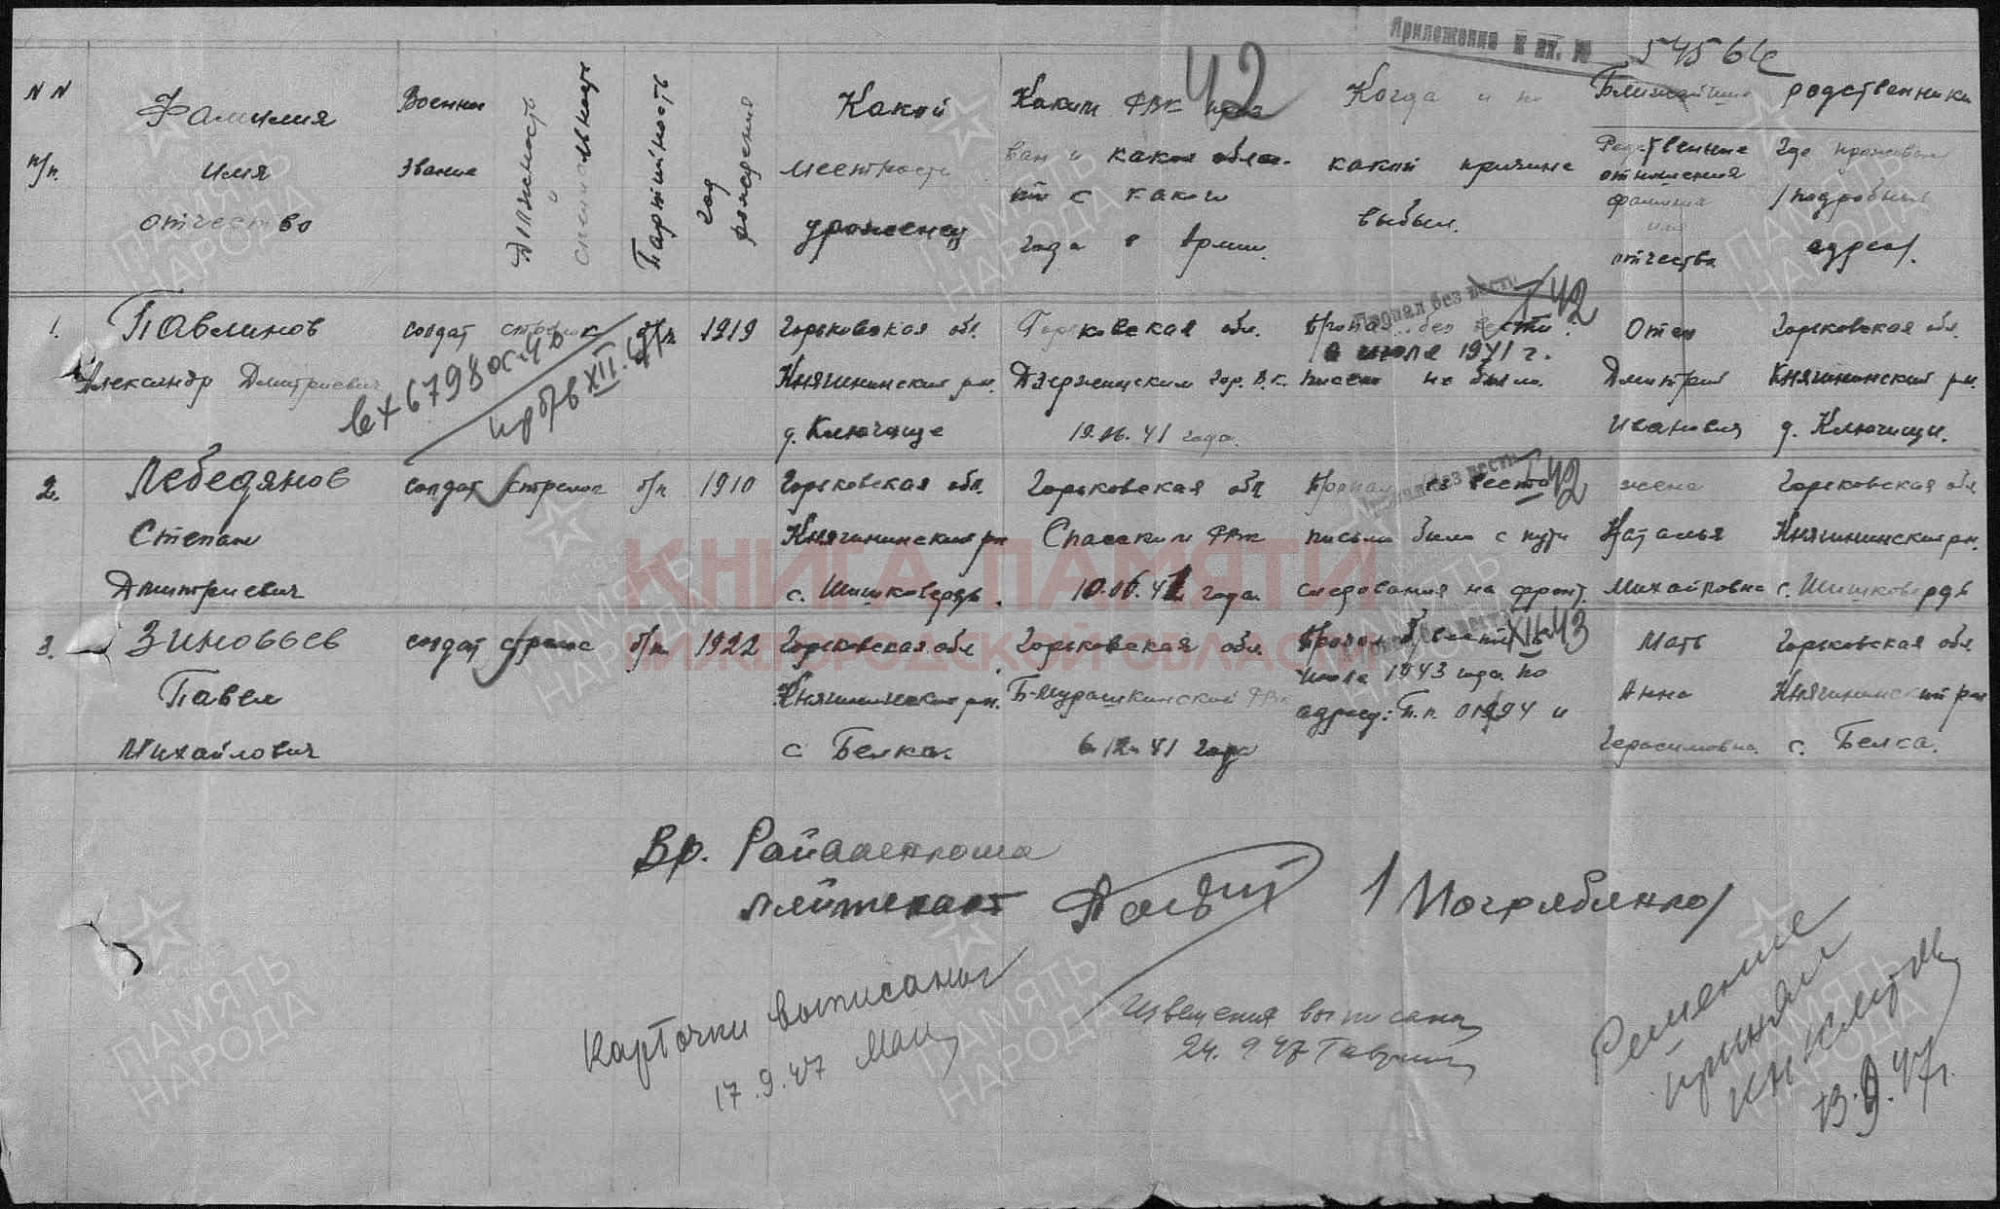 Приложение к вх. №
54564с
42
NN п/п.
Фамилия имя отчество
Военное звание
Должность и специальность
Партийность
год рождения
Какой местности уроженец
Каким РВК приз
ван и какой облас-
ти с какого
года в Армии.
Когда и по
какой причине
выбыл.
Ближайшие родственники
Родственные отношения фамилия имя отчества
Где проживают /подробный адрес/.
1. Павлинов солдат стрелок б/п 1919 Горьковская обл. Горьковская обл. Пропал без вести Отец Горьковская обл.
Пропал без вести
42
в июле 1941 г.
Александр Дмитриевич Княгининский рн. Дзержинским гор. В.К. писем не было. Дмитрий Княгининский рн.
вх 67980с-48
XII.
д. Ключище 19.06.41 года. Иванович д. Ключищи.
2. Лебедянов солдат стрелок б/п 1910 Горьковская обл. Горьковская обл Пропал без вести жена Горьковская обл
Пропал без вести
I 42
Степан Княгининский рн Спасским РВК письмо было с пути Наталья Княгининский рн.
Дмитриевич с. Шишковердь. 10.06.41 года. следования на фронт. Михайловна с. Шишковердь
3. Зиновьев солдат стрелок б/п. 1922 Горьковская обл Горьковская обл. Пропал б/вести Мать Горьковская обл.
XII 43
июле 1943 года по
Павел Княгининский рн. Б-Мурашкинский РВК Анна Княгининский рн
адресу: П.п. 01994 и
Михайлович с Белка. 6.12.41 года Герасимовна. с. Белка.
Вр. Райвоенкома
лейтенант /Погряблянко/
Карточки выписаны
17.9.47
Извещения выписаны
24.9 47
Решение
принял
13.9.47г.
КНИГА ПАМЯТИ
НИЖЕГОРОДСКОЙ ОБЛАСТИ
ПАМЯТЬ
НАРОДА